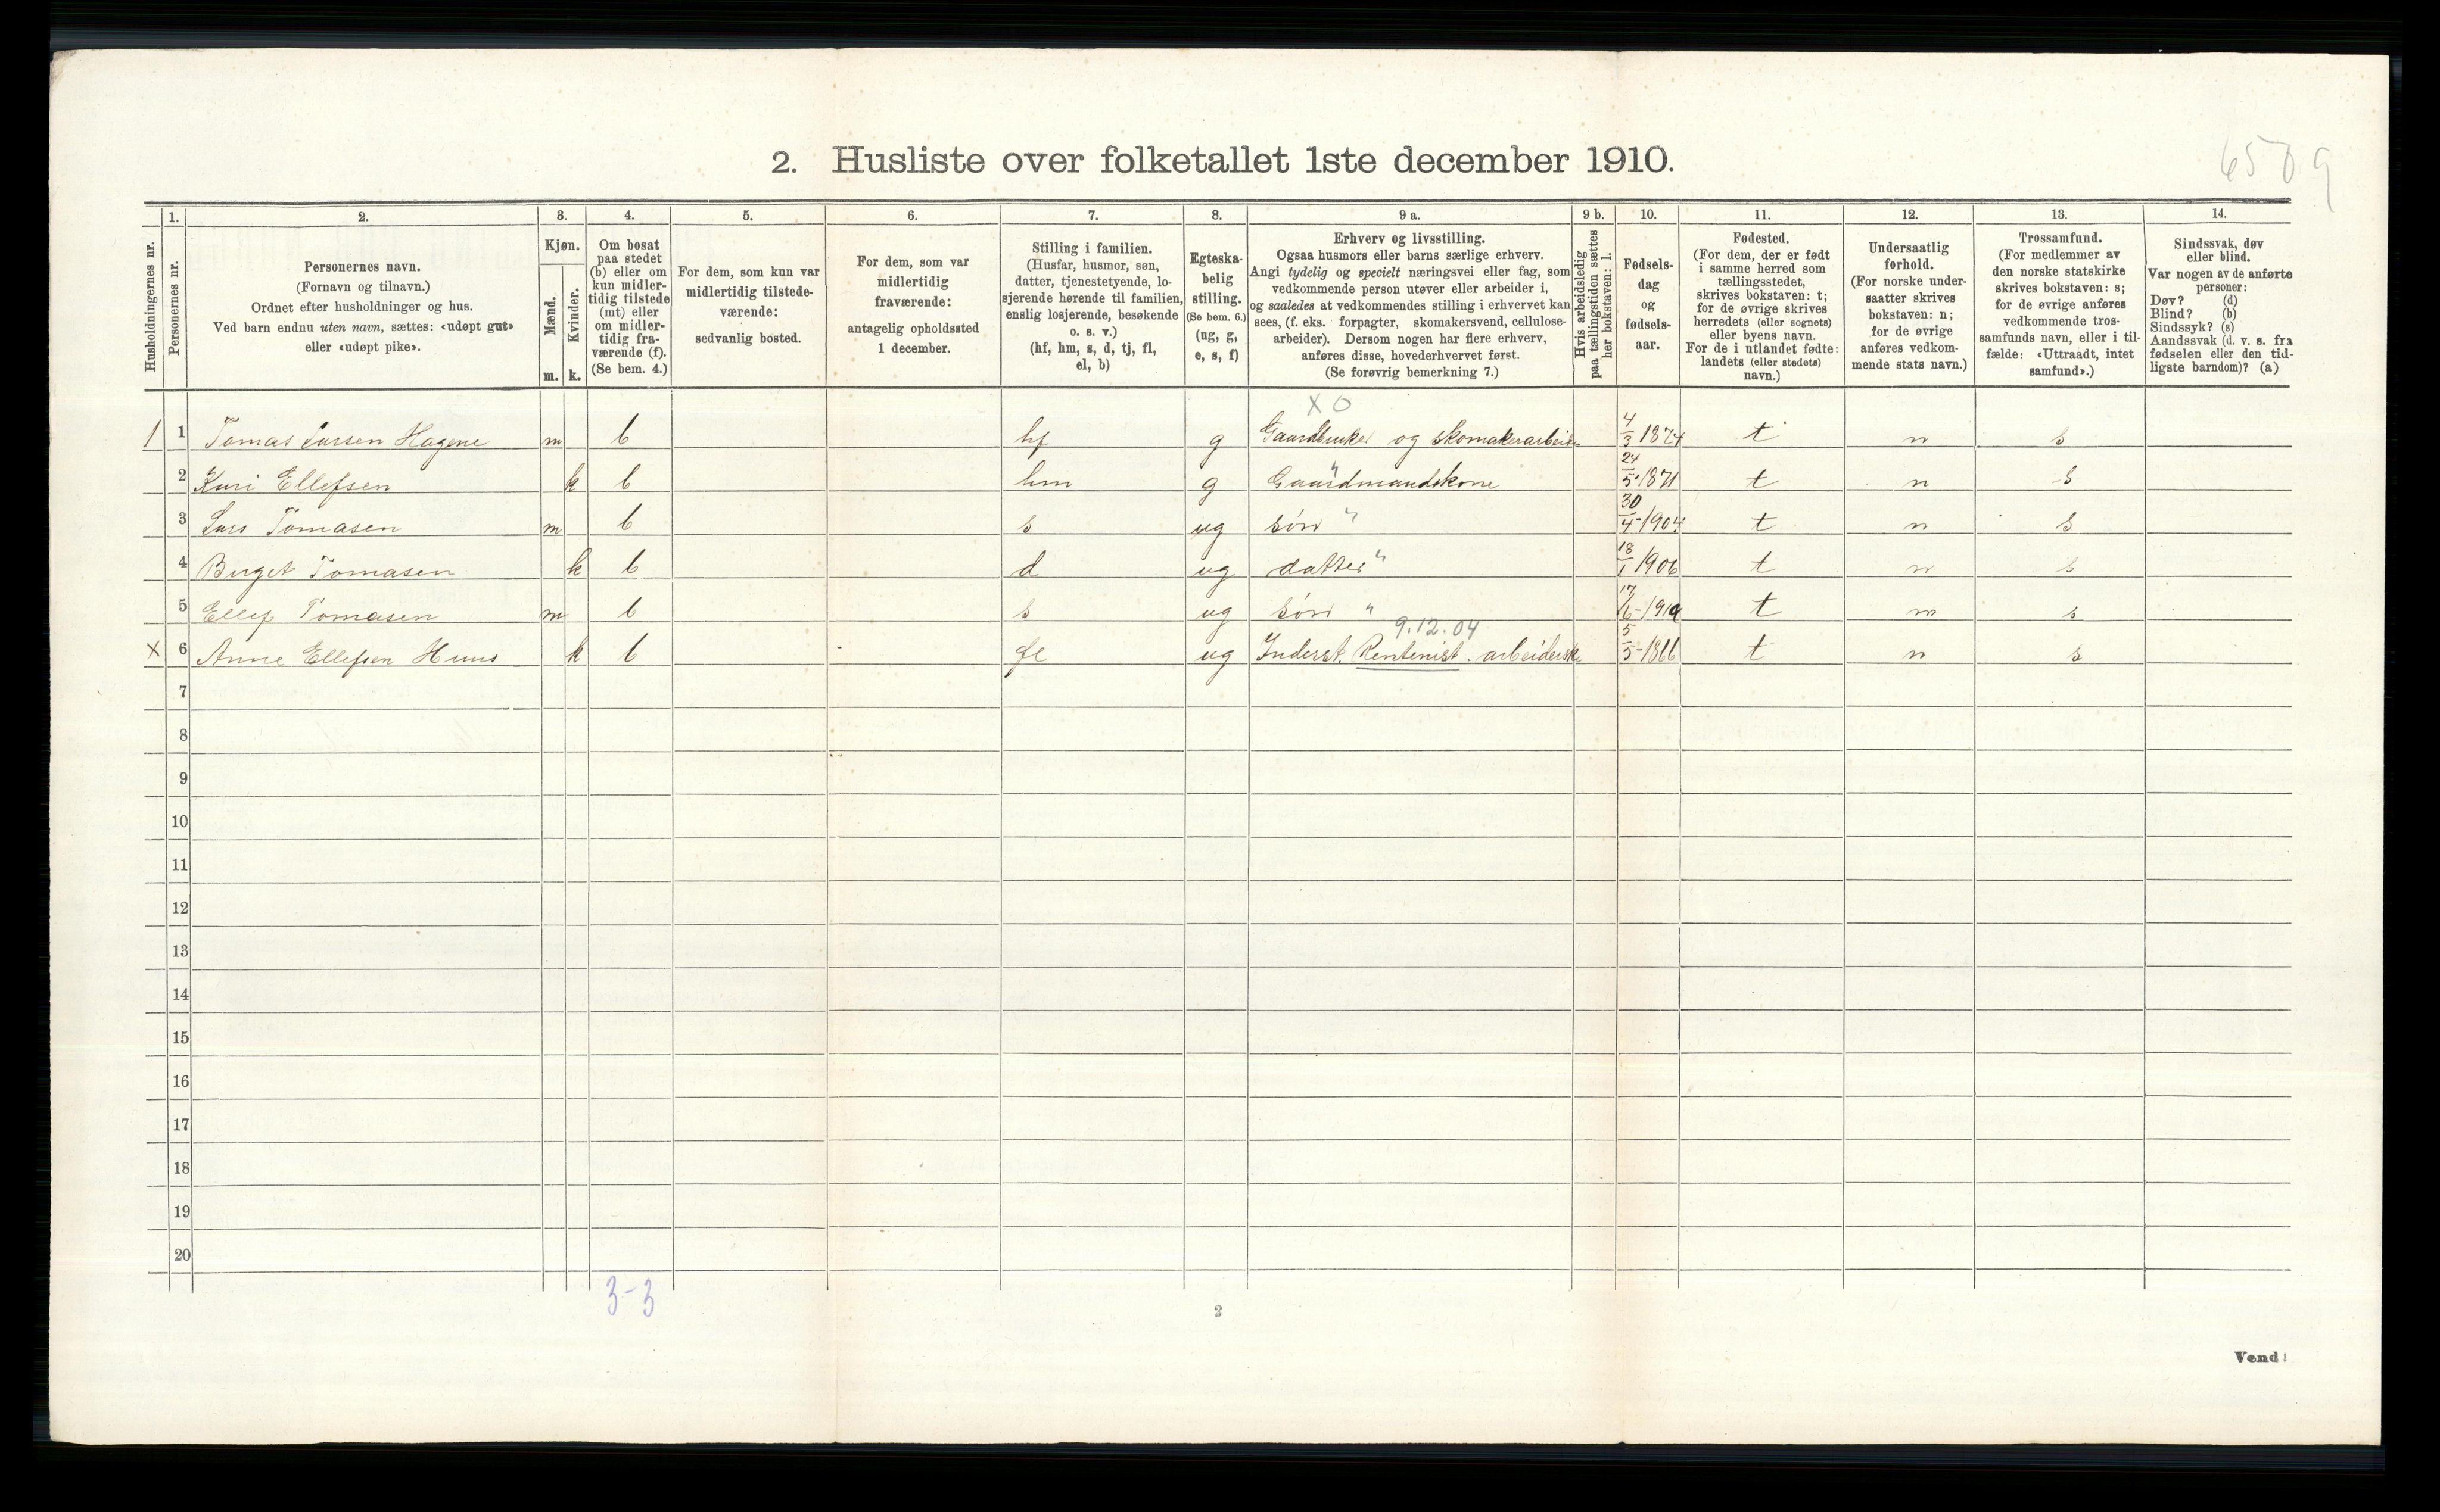 2. Husliste over folketallet 1ste december 1910.
Husholdningernes nr.
1.
Personernes nr.
2.
Personernes navn.
(Fornavn og tilnavn.)
Ordnet efter husholdninger og hus.
Ved barn endnu uten navn, sættes: «udøpt gut»
eller «udøpt pike».
3.
Kjøn.
Mænd.
Kvinder.
m. k.
4.
Om bosat
paa stedet
(b) eller om
kun midler-
tidig tilstede
(mt) eller
om midler-
tidig fra-
værende (f).
(Se bem. 4.)
5.
For dem, som kun var
midlertidig tilstede-
værende:
sedvanlig bosted.
6.
For dem, som var
midlertidig
fraværende:
antagelig opholdssted
1 december.
7.
Stilling i familien.
(Husfar, husmor, søn,
datter, tjenestetyende, lo-
sjerende hørende til familien,
enslig losjerende, besøkende
o. s. v.)
(hf, hm, s, d, tj, fl,
el, b)
8.
Egteska-
belig
stilling.
(Se bem. 6.)
(ug, g,
e, s, f)
9 a.
Erhverv og livsstilling.
Ogsaa husmors eller barns særlige erhverv.
Angi tydelig og specielt næringsvei eller fag, som
vedkommende person utøver eller arbeider i,
og saaledes at vedkommendes stilling i erhvervet kan
sees, (f. eks. forpagter, skomakersvend, cellulose-
arbeider). Dersom nogen har flere erhverv,
anføres disse, hovederhvervet først.
(Se forøvrig bemerkning 7.)
9 b.
Hvis arbeidsledig
paa tællingstiden sættes
her bokstaven: l.
10.
Fødsels-
dag
og
fødsels-
aar.
11.
Fødested.
(For dem, der er født
i samme herred som
tællingsstedet,
skrives bokstaven: t;
for de øvrige skrives
herredets (eller sognets)
eller byens navn.
For de i utlandet fødte:
landets (eller stedets)
navn.)
12.
Undersaatlig
forhold.
(For norske under-
saatter skrives
bokstaven: n;
for de øvrige
anføres vedkom-
mende stats navn.)
13.
Trossamfund.
(For medlemmer av
den norske statskirke
skrives bokstaven: s;
for de øvrige anføres
vedkommende tros-
samfunds navn, eller i til-
fælde: «Uttraadt, intet
samfund».)
14.
Sindssvak, døv
eller blind.
Var nogen av de anførte
personer:
Døv? (d)
Blind? (b)
Sindssyk? (s)
Aandssvak (d. v. s. fra
fødselen eller den tid-
ligste barndom)? (a)
X O
1 1 Tomas Larsen Hagene m b hf g Gaardbruker og skomakerarbeider 4/3 1874 t n s
2 Kari Ellefsen k b hm g Gaardmandskone 24/5 1871 t n s
3 Lars Tomasen m b s ug søn " 30/4 1904 t n s
4 Berget Tomasen k b d ug datter " 18/1 1906 t n s
5 Ellef Tomasen m b s ug søn " 17/6 1910 t n s
9.12.04
X 6 Anne Ellefsen Huus k b fl ug Inderst. Rentenist. arbeiderske 5/5 1866 t n s
7
8
9
10
11
12
13
14
15
16
17
18
19
20
3-3
2
Vend!